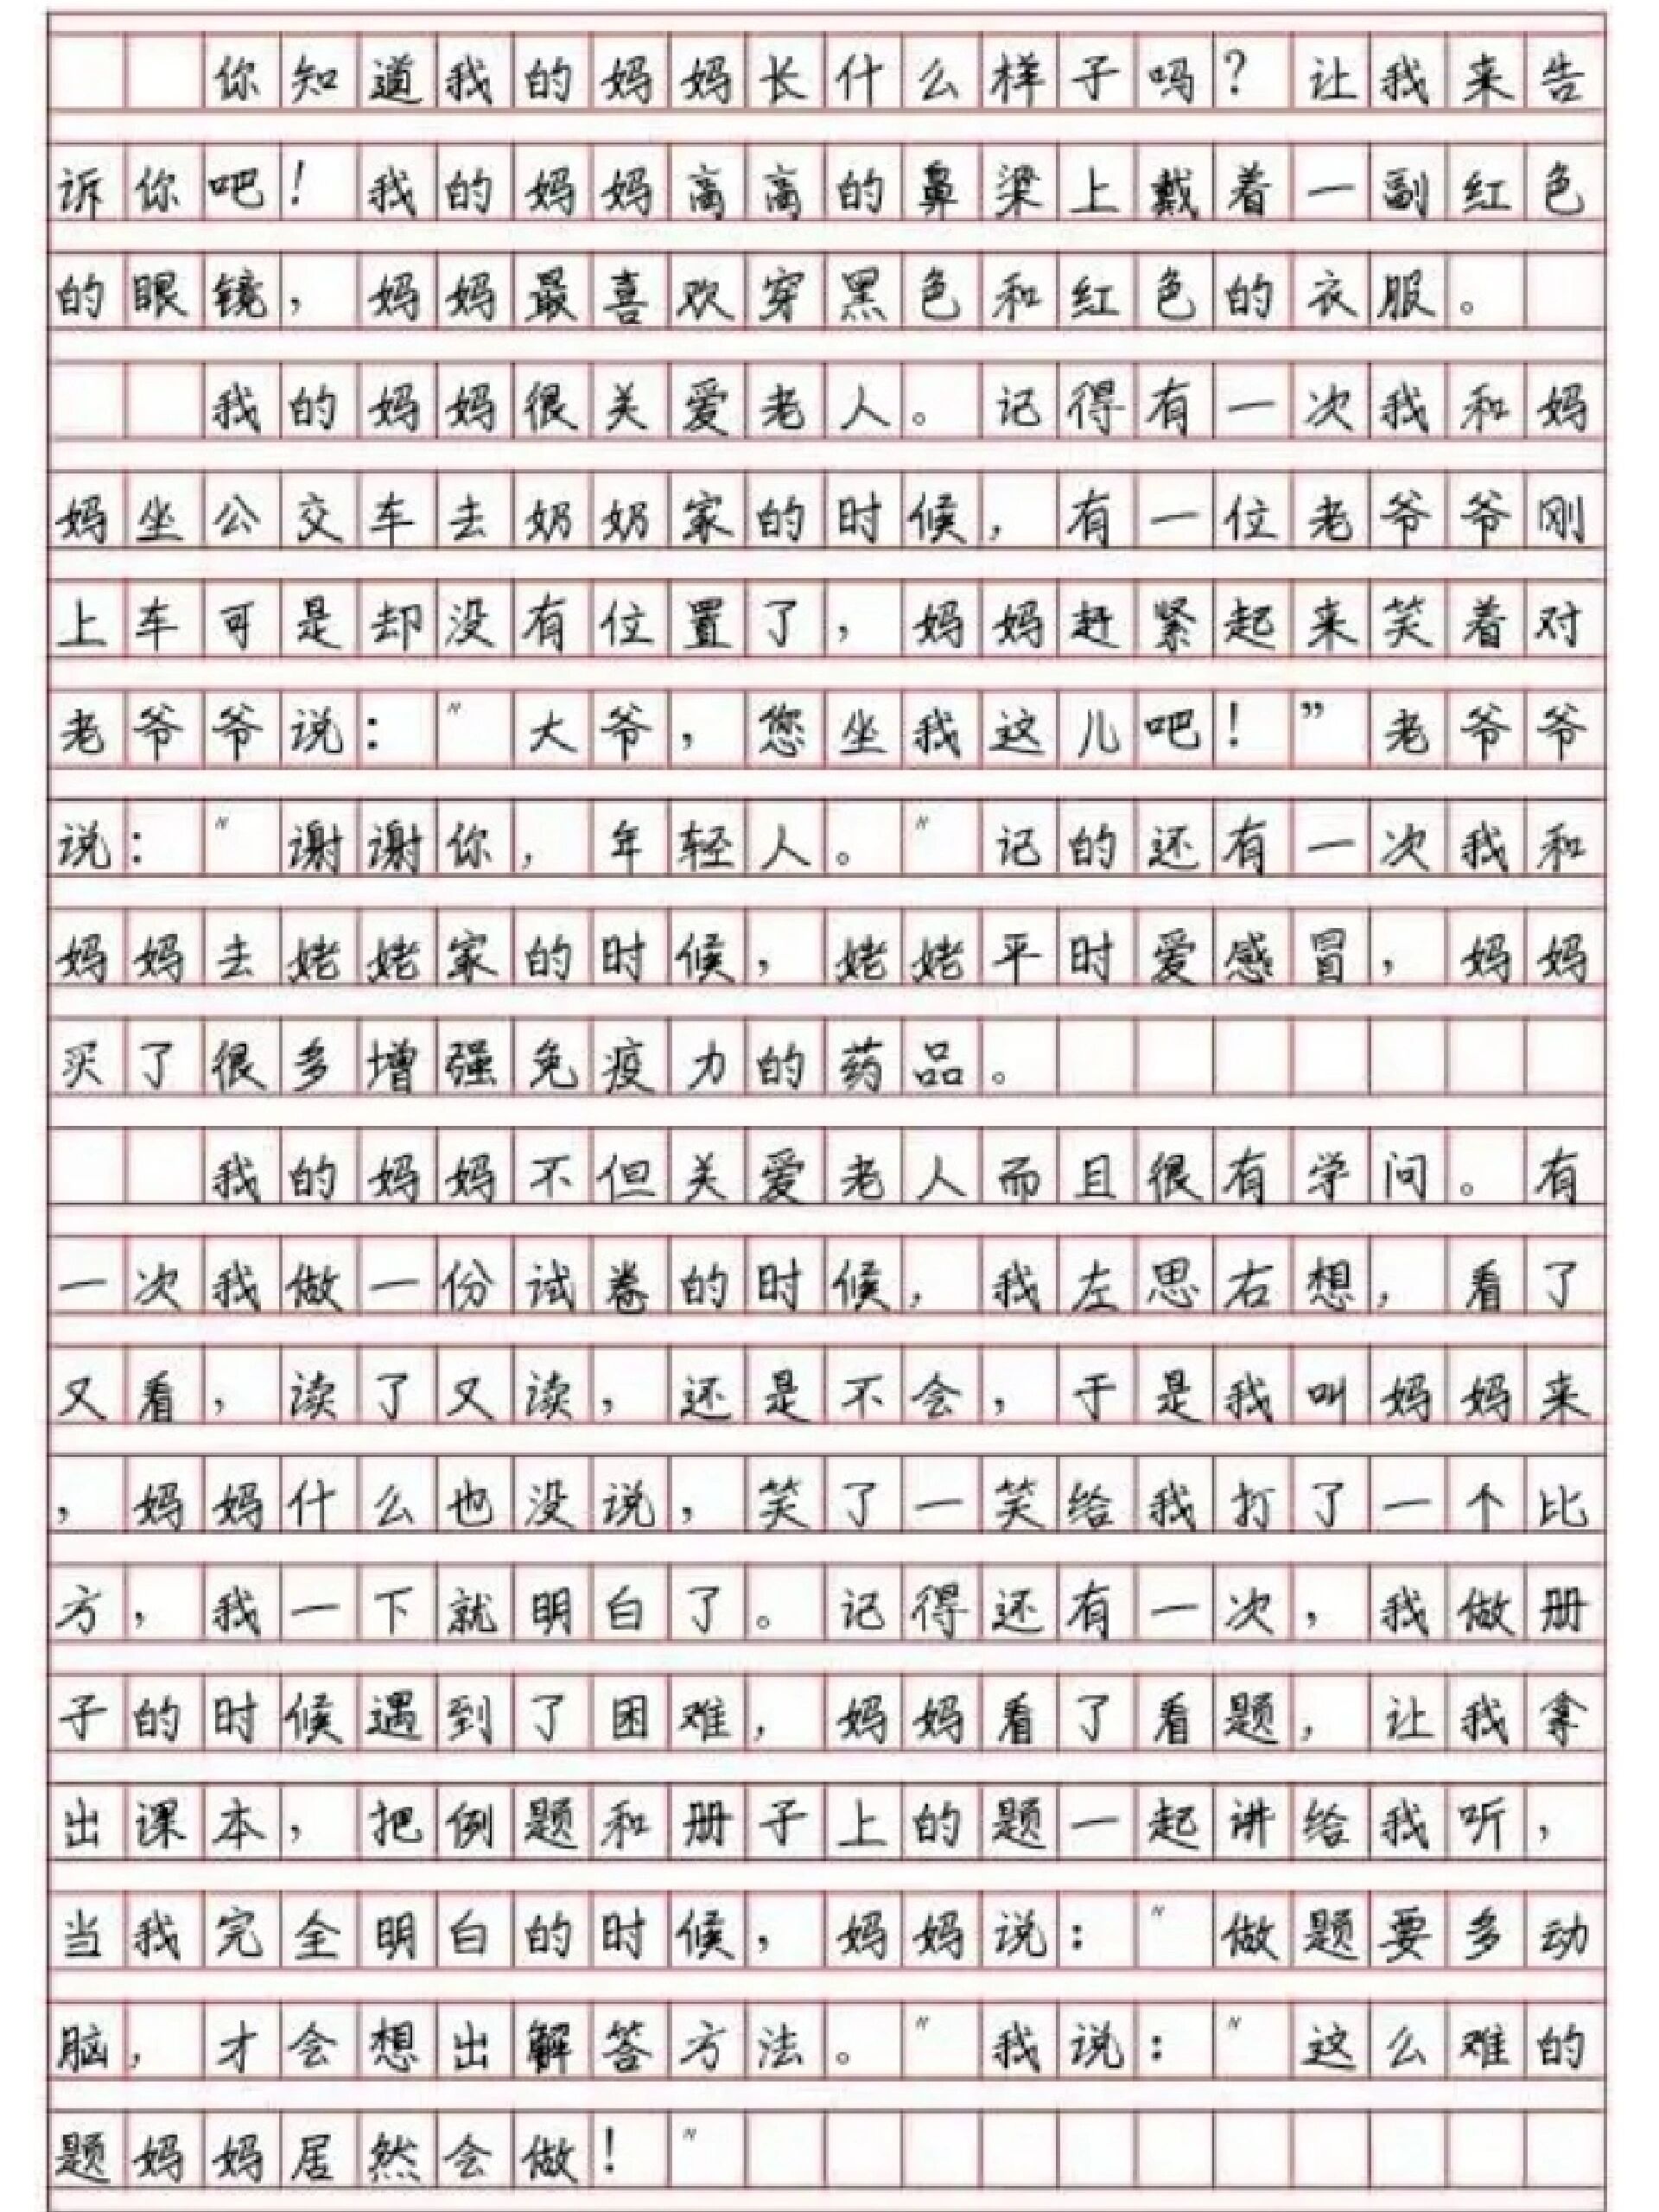 你知道我的妈妈长什么样子吗？让我来告
诉你吧！我的妈妈高高的鼻梁上戴着一副红色
的眼镜，妈妈最喜欢穿黑色和红色的衣服。
我的妈妈很关爱老人。记得有一次我和妈
妈坐公交车去奶奶家的时候，有一位老爷爷刚
上车可是却没有位置了，妈妈赶紧起来笑着对
老爷爷说："大爷，您坐我这儿吧！”老爷爷
说："谢谢你，年轻人。"记的还有一次我和
妈妈去姥姥家的时候，姥姥平时爱感冒，妈妈
买了很多增强免疫力的药品。
我的妈妈不但关爱老人而且很有学问。有
一次我做一份试卷的时候，我左思右想，看了
又看，读了又读，还是不会，于是我叫妈妈来
，妈妈什么也没说，笑了一笑给我打了一个比
方，我一下就明白了。记得还有一次，我做册
子的时候遇到了困难，妈妈看了看题，让我拿
出课本，把例题和册子上的题一起讲给我听，
当我完全明白的时候，妈妈说："做题要多动
脑，才会想出解答方法。"我说："这么难的
题妈妈居然会做！"